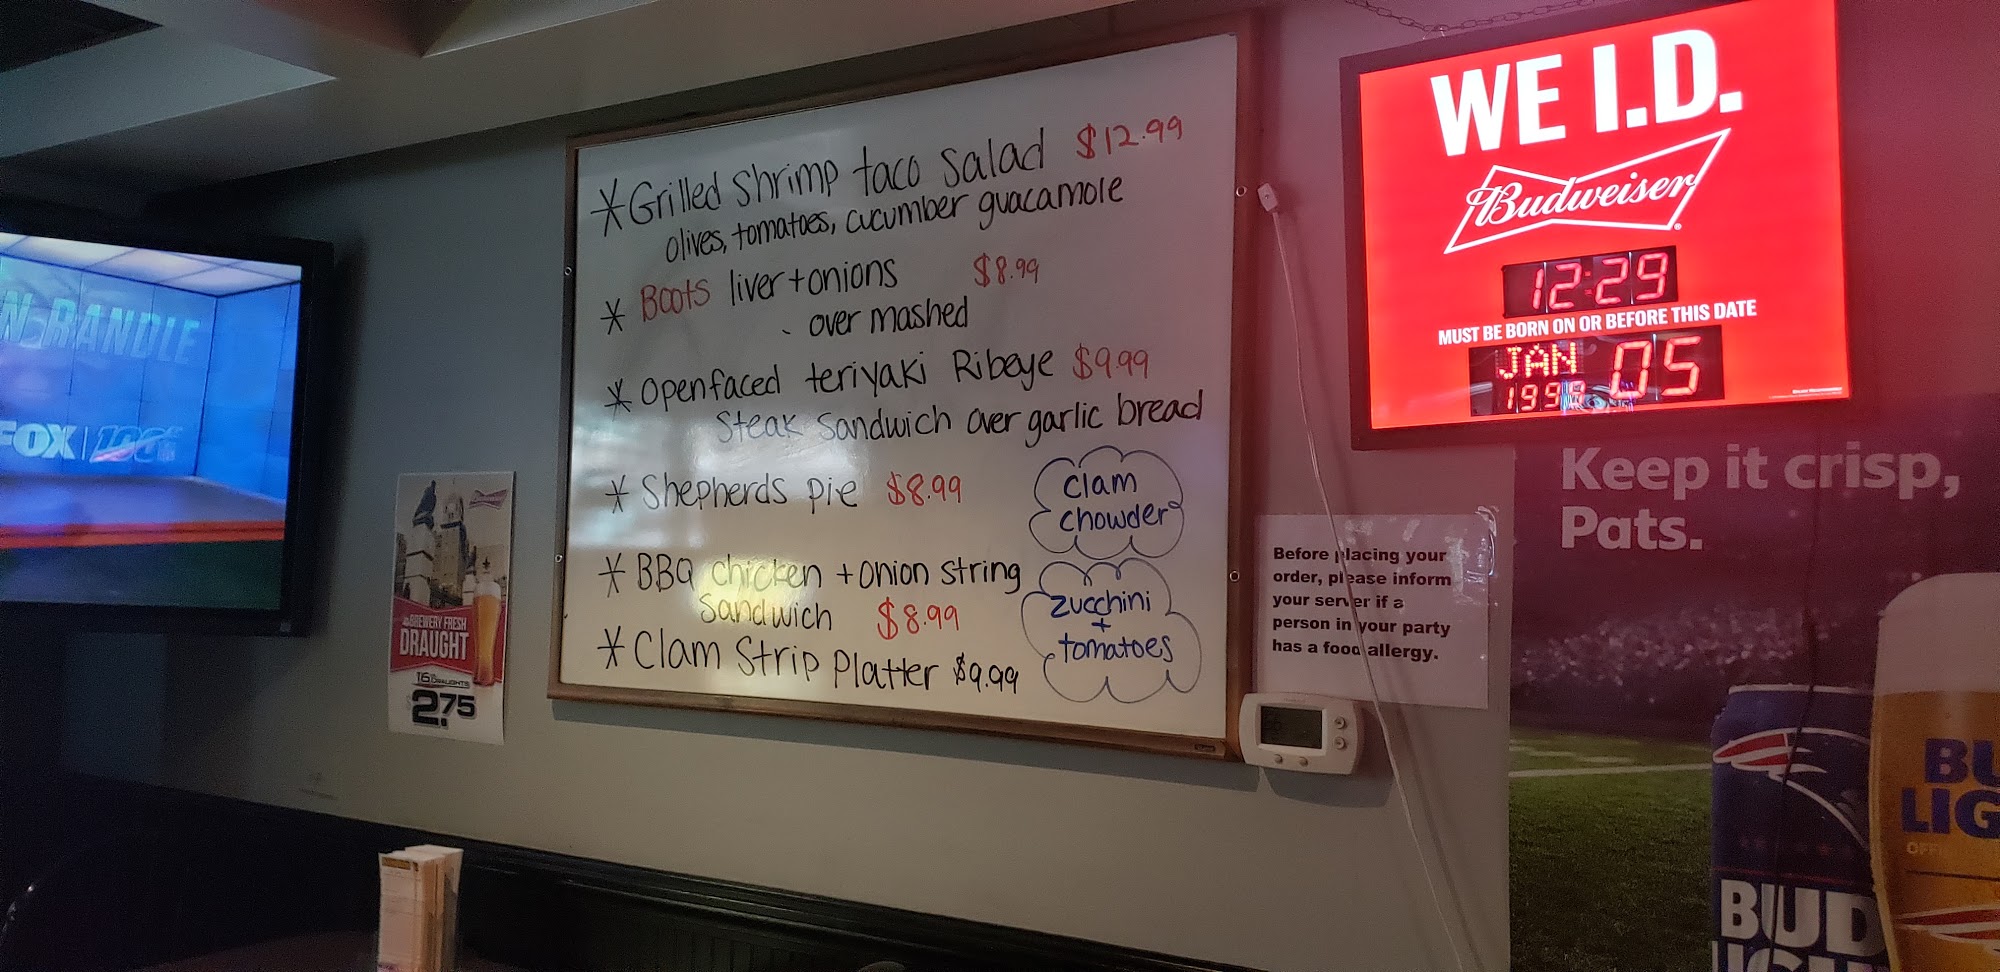 N RANDLE
FOX
100
BREWERY FRESH
DRAUGHT
16 oz DRAUGHTS
$2.75
* Grilled Shrimp taco Salad $12.99
olives, tomatoes, cucumber guacamole
* Boots liver + onions $8.99
over mashed
* Openfaced teriyaki Ribeye $9.99
Steak Sandwich over garlic bread
* Shepherds pie $8.99
* BBQ chicken + onion string
Sandwich $8.99
* Clam Strip Platter $9.99
Clam
chowder
zucchini
+
tomatoes
WE I.D.
Budweiser
12:29
MUST BE BORN ON OR BEFORE THIS DATE
JAN 05
Keep it crisp,
Pats.
Before placing your
order, please inform
your server if a
person in your party
has a food allergy.
BUD
BU
LIG